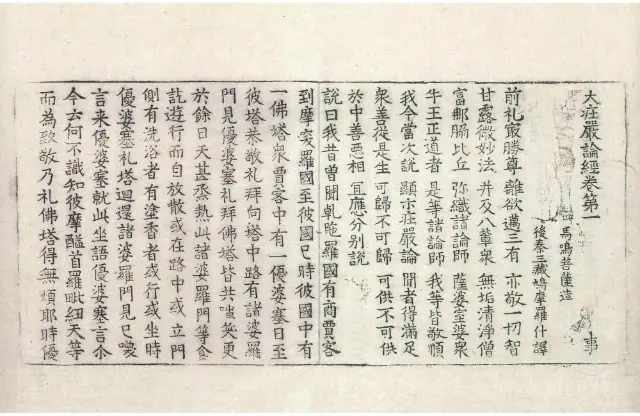 大疘嚴論經卷第一
馬鳴菩薩造
後秦三藏鳩摩羅什譯
事
前礼冣勝尊 離欲邁三有 亦敬一切智
甘露微妙法 并及八輩衆 無垢清淨僧
富那脇比丘 弥織諸論師 薩婆室婆衆
牛王正道者 是等諸論師 我等皆敬順
我今當次說 顯示疘嚴論 聞者得滿足
衆善從是生 可歸不可歸 可供不可供
於中善惡相 宜應分別說
說曰我昔曽聞乹陁羅國有商賈客
到摩突羅國至彼國已時彼國中有
一佛塔衆賈客中有一優婆塞日至
彼塔恭敬礼拜向塔中路有諸婆羅
門見優婆塞礼拜佛塔皆共嗤笑更
於餘日天甚烝熱此諸婆羅門等食
訖遊行而自放散或在路中或立門
側有洗浴者有塗香者或行或坐時
優婆塞礼塔迴還諸婆羅門見已㗅
言来優婆塞就此坐語優婆塞言尒
今云何不識知彼摩醯首羅毗紐天等
而為致敬乃礼佛塔得無煩耶時優